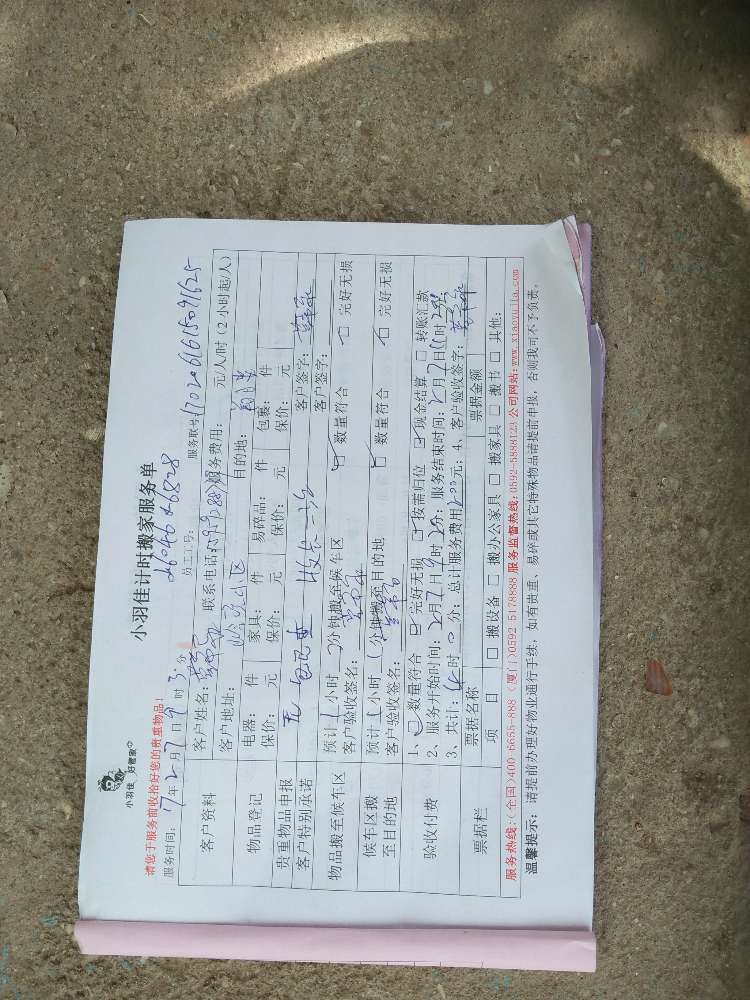 小羽佳 好管家
小羽佳计时搬家服务单
请您于服务前收拾好您的贵重物品!
服务时间: 17年2月7日9时3分 员工工号: 服务联号
客户资料 客户姓名: 联系电话 服务费用: 元/人/时 (2小时起/人)
客户地址: 小区 目的地:
物品登记 电器: 件 家具: 件 易碎品: 件 包裹: 件
保价: 元 保价: 元 保价: 元 保价: 元
贵重物品申报 无 客户签字:
客户特别承诺 客户签字:
物品搬至候车区 预计1小时 分钟搬至候车区 数量符合 完好无损
客户验收签名:
候车区搬至目的地 预计1小时 分钟搬至目的地 数量符合 完好无损
客户验收签名:
验收付费 1、数量符合 完好无损 按需归位 现金结算 转账汇款
2、服务开始时间: 2月7日9时20分; 服务结束时间: 2月7日11时20分
3、共计: 时0分; 总计服务费用200元; 4、客户验收签字:
票据栏 票据名称 票据金额
项目 搬设备 搬办公家具 搬家具 搬书 其他:
服务热线:(全国)400-6655-888 (厦门)0592 5178888 服务监督热线:0592-5888123 公司网站:www.xiaoyujia.com
温馨提示: 请提前办理好物业通行手续, 如有贵重、易碎或其它特殊物品请提前申报, 否则我司不予负责。